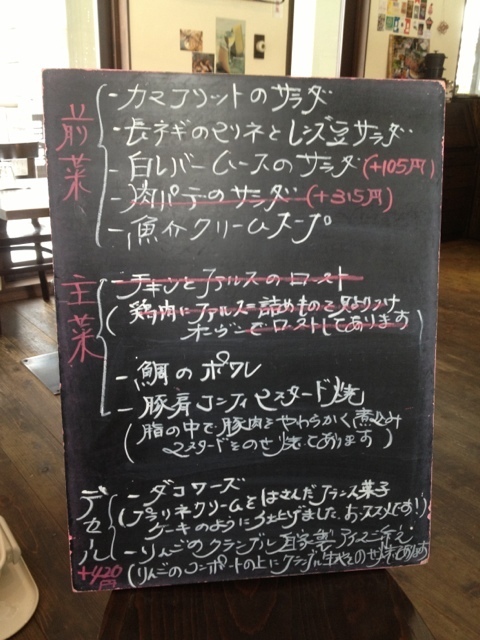 前菜
- カマフリットのサラダ
- 長ネギのテリネとレンズ豆サラダ
- 白レバームースのサラダ(+105円)
- 肉パテのサラダ (+315円)
- 魚介クリームスープ
主菜
- チキンとファルスのロースト
(鶏肉にファルス=詰めものをはりつけ
オーヴンでローストしてあります)
- 鯛のポワレ
- 豚肩コンフィマスタード焼
(脂の中で豚肉をやわらかく煮込み
マスタードをのせ焼いてあります)
デセール
+420円
- ダコワーズ
(プラリネクリームをはさんだフランス菓子
ケーキのように仕上げました。おススメです!)
- りんごのクランブル 自家製アイス添え
(りんごのコンポートの上にクランブル生地をのせ焼いてあります